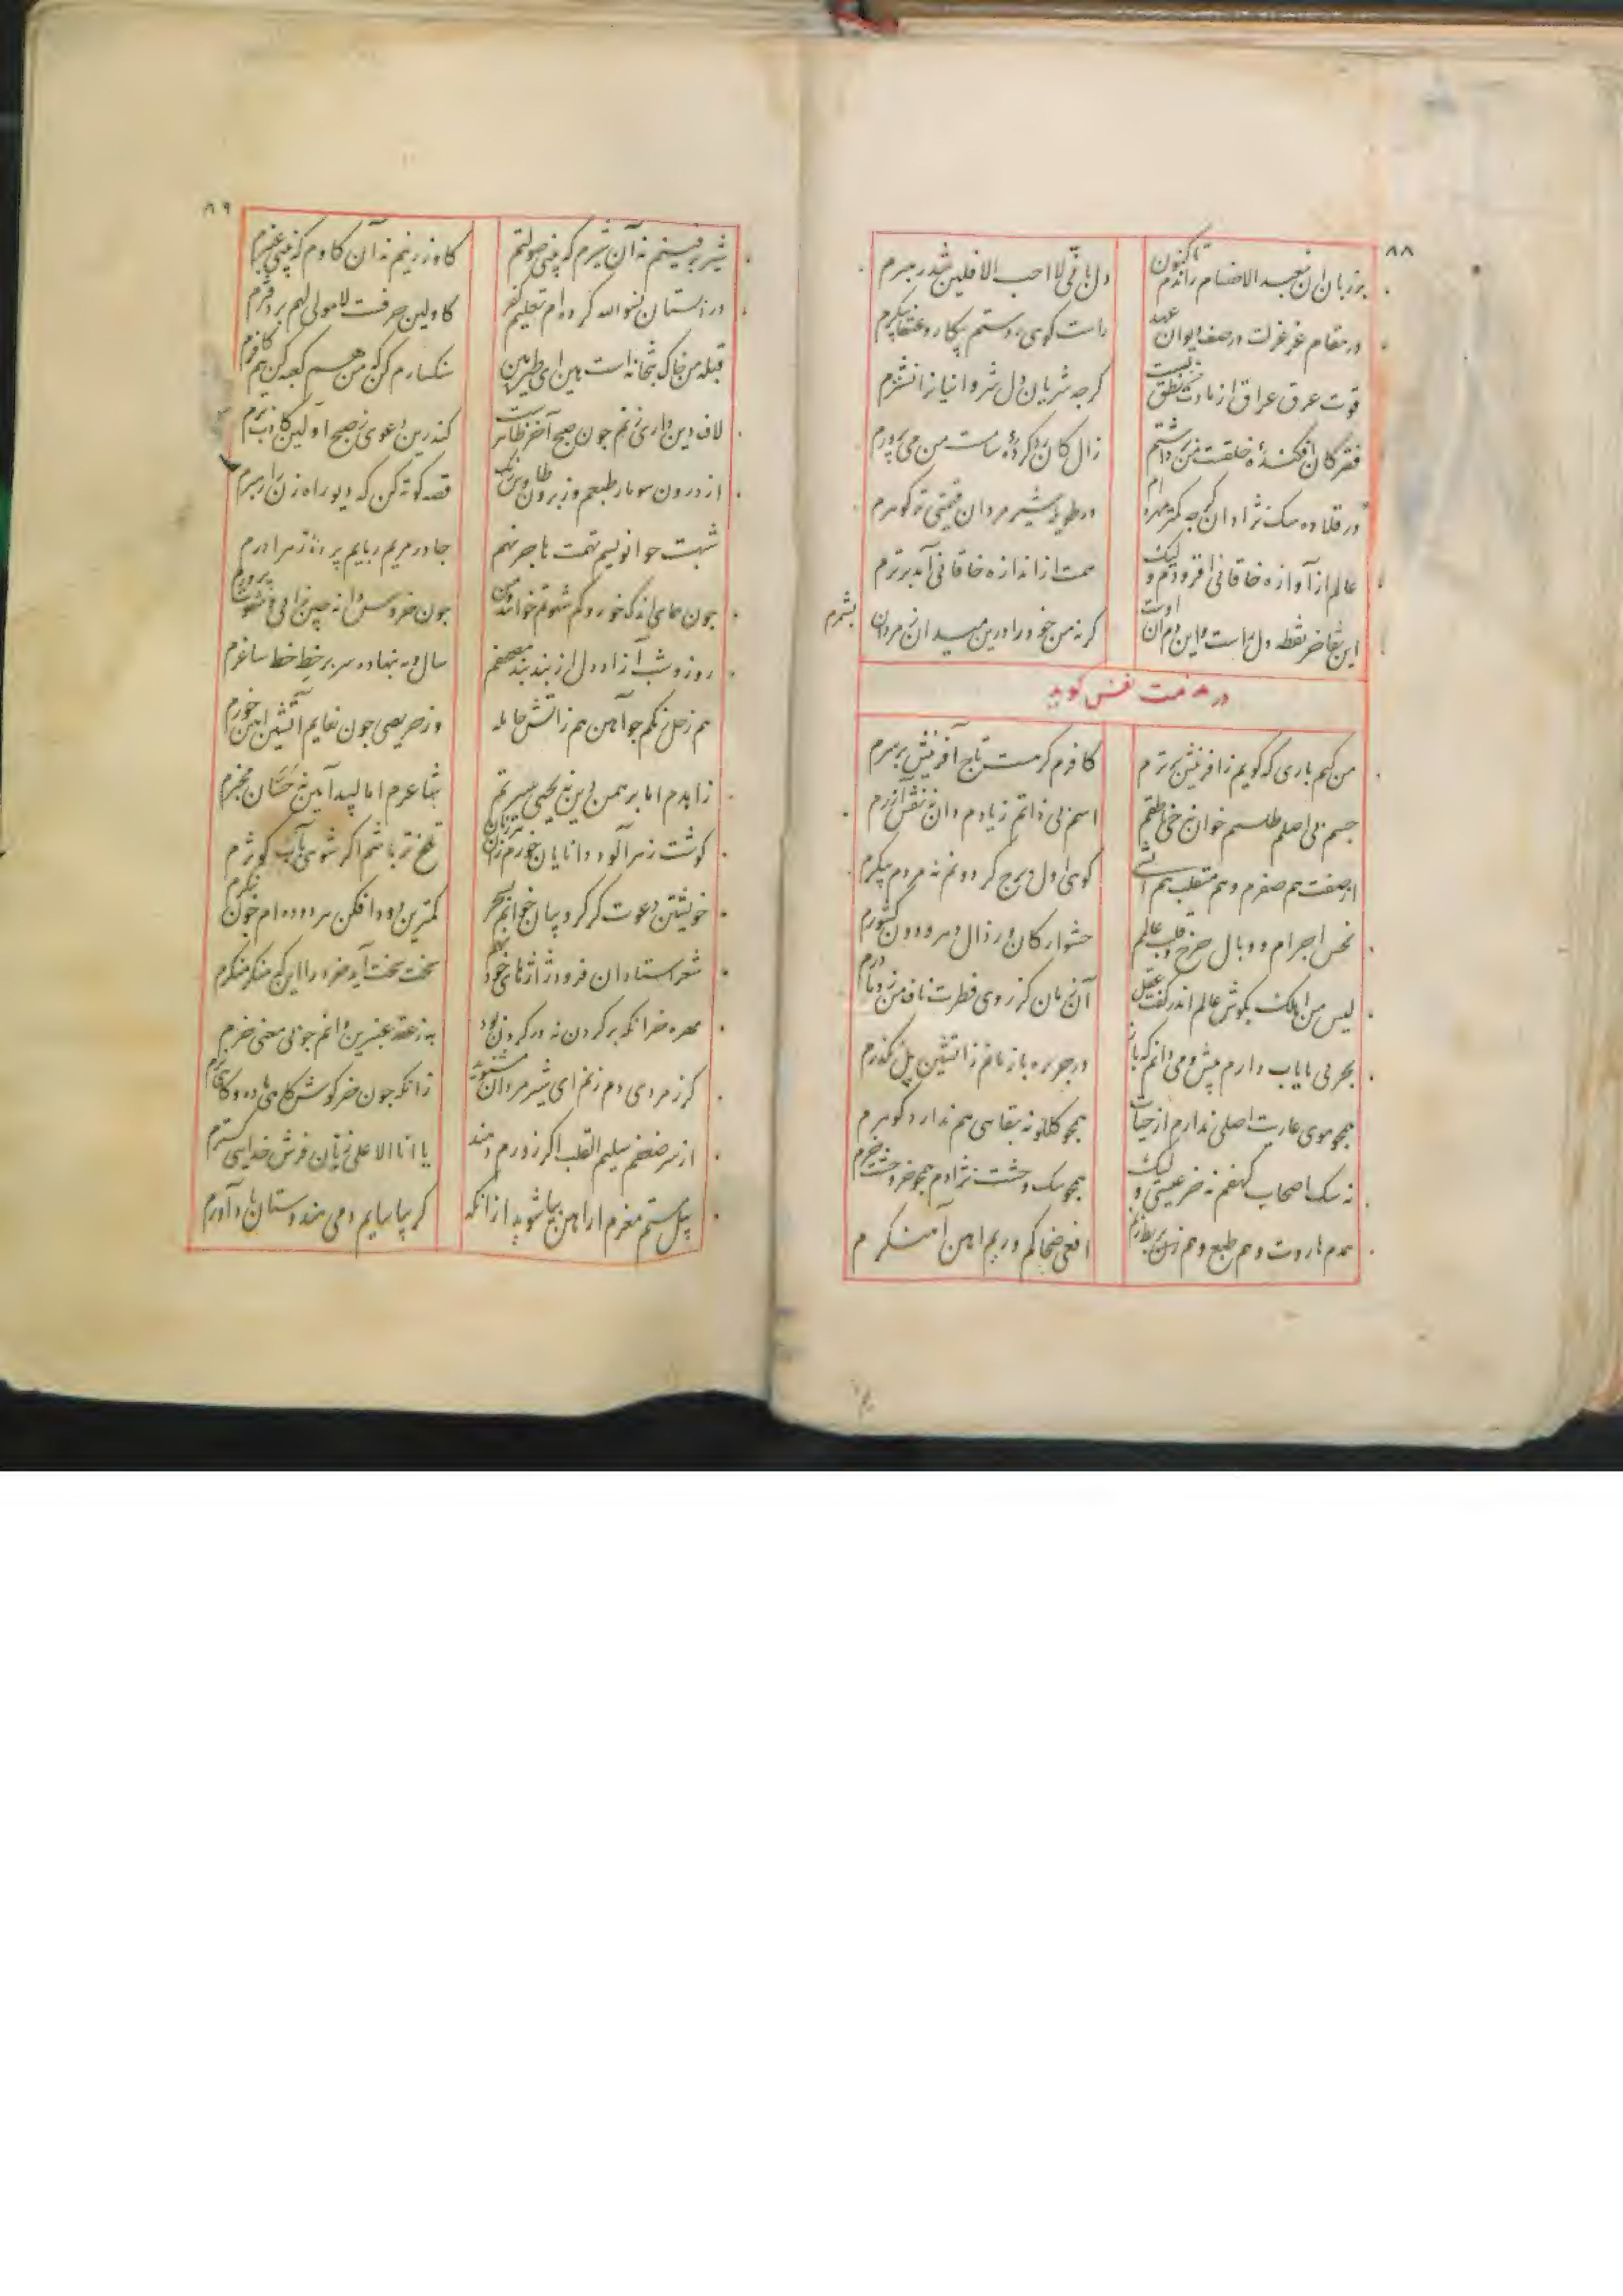 ۸۸
بر زبان ان نعبد الاصنام راندم تاکنون
دل بانی لا احب الافلین شد رهبرم
در مقام عز عزلت در صف دیوان عهد
راست کوی رستم پیکار و عنقا پیکرم
قوت عرق عراق از مادت نطق منست
کرجه شریان دل شروانیان را نشترم
فقر کان افکندهٔ خلقت من برداشتم
زال کان رد کردهٔ سامست من می پرورم
در قلاده سک نژادان کرجه کمتر مهره ام
در طویله شیر مردان قیمتی تر کوهرم
عالم از آوازه خاقانی افروزم و لیک
همت از اندازه خاقانی آمد برترم
این تفاخر نقطه دل راست وین دم زان اوست
کر نه من خود را درین میدان ز مردان نشمرم
در مذمت نفس کوید
من کیم باری که کویم ز آفرینش برترم
کافرم کر هست تاج آفرینش بر سرم
جسم بی اصلم طلسم خوان نه حی ناطقم
اسم بی ذاتم زبادم دان نه نقش آزرم
از صفت هم صفرم و هم منقلب هم آتشی
کوی اول برج کردونم نه مردم پیکرم
نحس اجرام و وبال چرخ و قلب عالمم
حشو ارکان و رذال دهر و دون کشورم
لیس من اهلک بکوش عالم اندر کفت عقل
آن زمان کز روی فطرت ناف من زد مادرم
بحر بی پایاب دارم پیش و می دانم که باز
در جزیره باز مانم ز آتشین پل نکذرم
همجو موی عاریت اصلی ندارم از حیات
همجو کلکونه بقاسی هم ندارد کوهرم
نه سک اصحاب کهفم نه خر عیسی و لیک
همجو سک وحشت نژادم همجو خر وحشت خرم
همدم هاروت و هم طبع و هم زن بربط زنم
افعی ضحاکم و ریم اهن آهنکرم
۸۹
شیر برفینم نه آن شیرم که بینی صولتم
کاو زرینم نه آن کاوم که بینی عنبرم
در دبستان نسوا الله کرده ام تعلیم کفر
کاولین حرفست لا مولی لهم بر دفترم
قبله من خاک بتخانه است هین ای طیر هین
سنکسارم کن که من هم کعبه کن هم کافرم
لاف دین داری زنم جون صبح آخر ظاهرست
کندرین دعوی ز صبح اولین کاذب ترم
از درون سو مار طبعم وز برون طاوس رنک
قصه کوته کن که دیو راه زن را رهبرم
شبهت حوا نویسم تهمت هاجر نهم
جادر مریم ربایم پردهٔ زهرا درم
جون همای اندک خور و کم شهوتم خوانند و من
جون خروس دانه چین زانی و شهوت پرورم
روز و شب آزاد دل از بند بند مصحفم
سال و مه بنهاده سر بر خط خط ساغرم
هم زحل رنکم جو آهن هم ز آتش حامله
وز حریصی جون نعایم آتشین اهن خورم
زاهدم اما برهمن دین نه یحیی سیرتم
شاعرم اما لبید آیین نه حسان مخبرم
کوشت زهرآلود دانایان خورم زان
تلخ تر باشم اکر شوئی بآب کوثرم
خویشتن دعوت کر کروبیان خوانم بسحر
کمترین دود افکن هر دوده ام جون بنکرم
شعر استادان فرود ژاژهای خود نهم
سخت سخت آید خرد را این که منکر منکرم
مهره خر انکه بر کردن نه در کردن بود
به ز عقد عنبرین دانم جو بی معنی خرم
کر ز مردی دم زنم ای شیر مردان مشنوید
زانکه جون خرکوش کاهی ماده و کاهی نرم
از سر ضعفم سلیم القلب اکر زورم دهند
یا انا الاعلی زنان فرش خدایی کسترم
پیل مستم مغزم را اهن بیاشوبید از انکه
کر بیاسایم دمی هندوستان یاد آورم